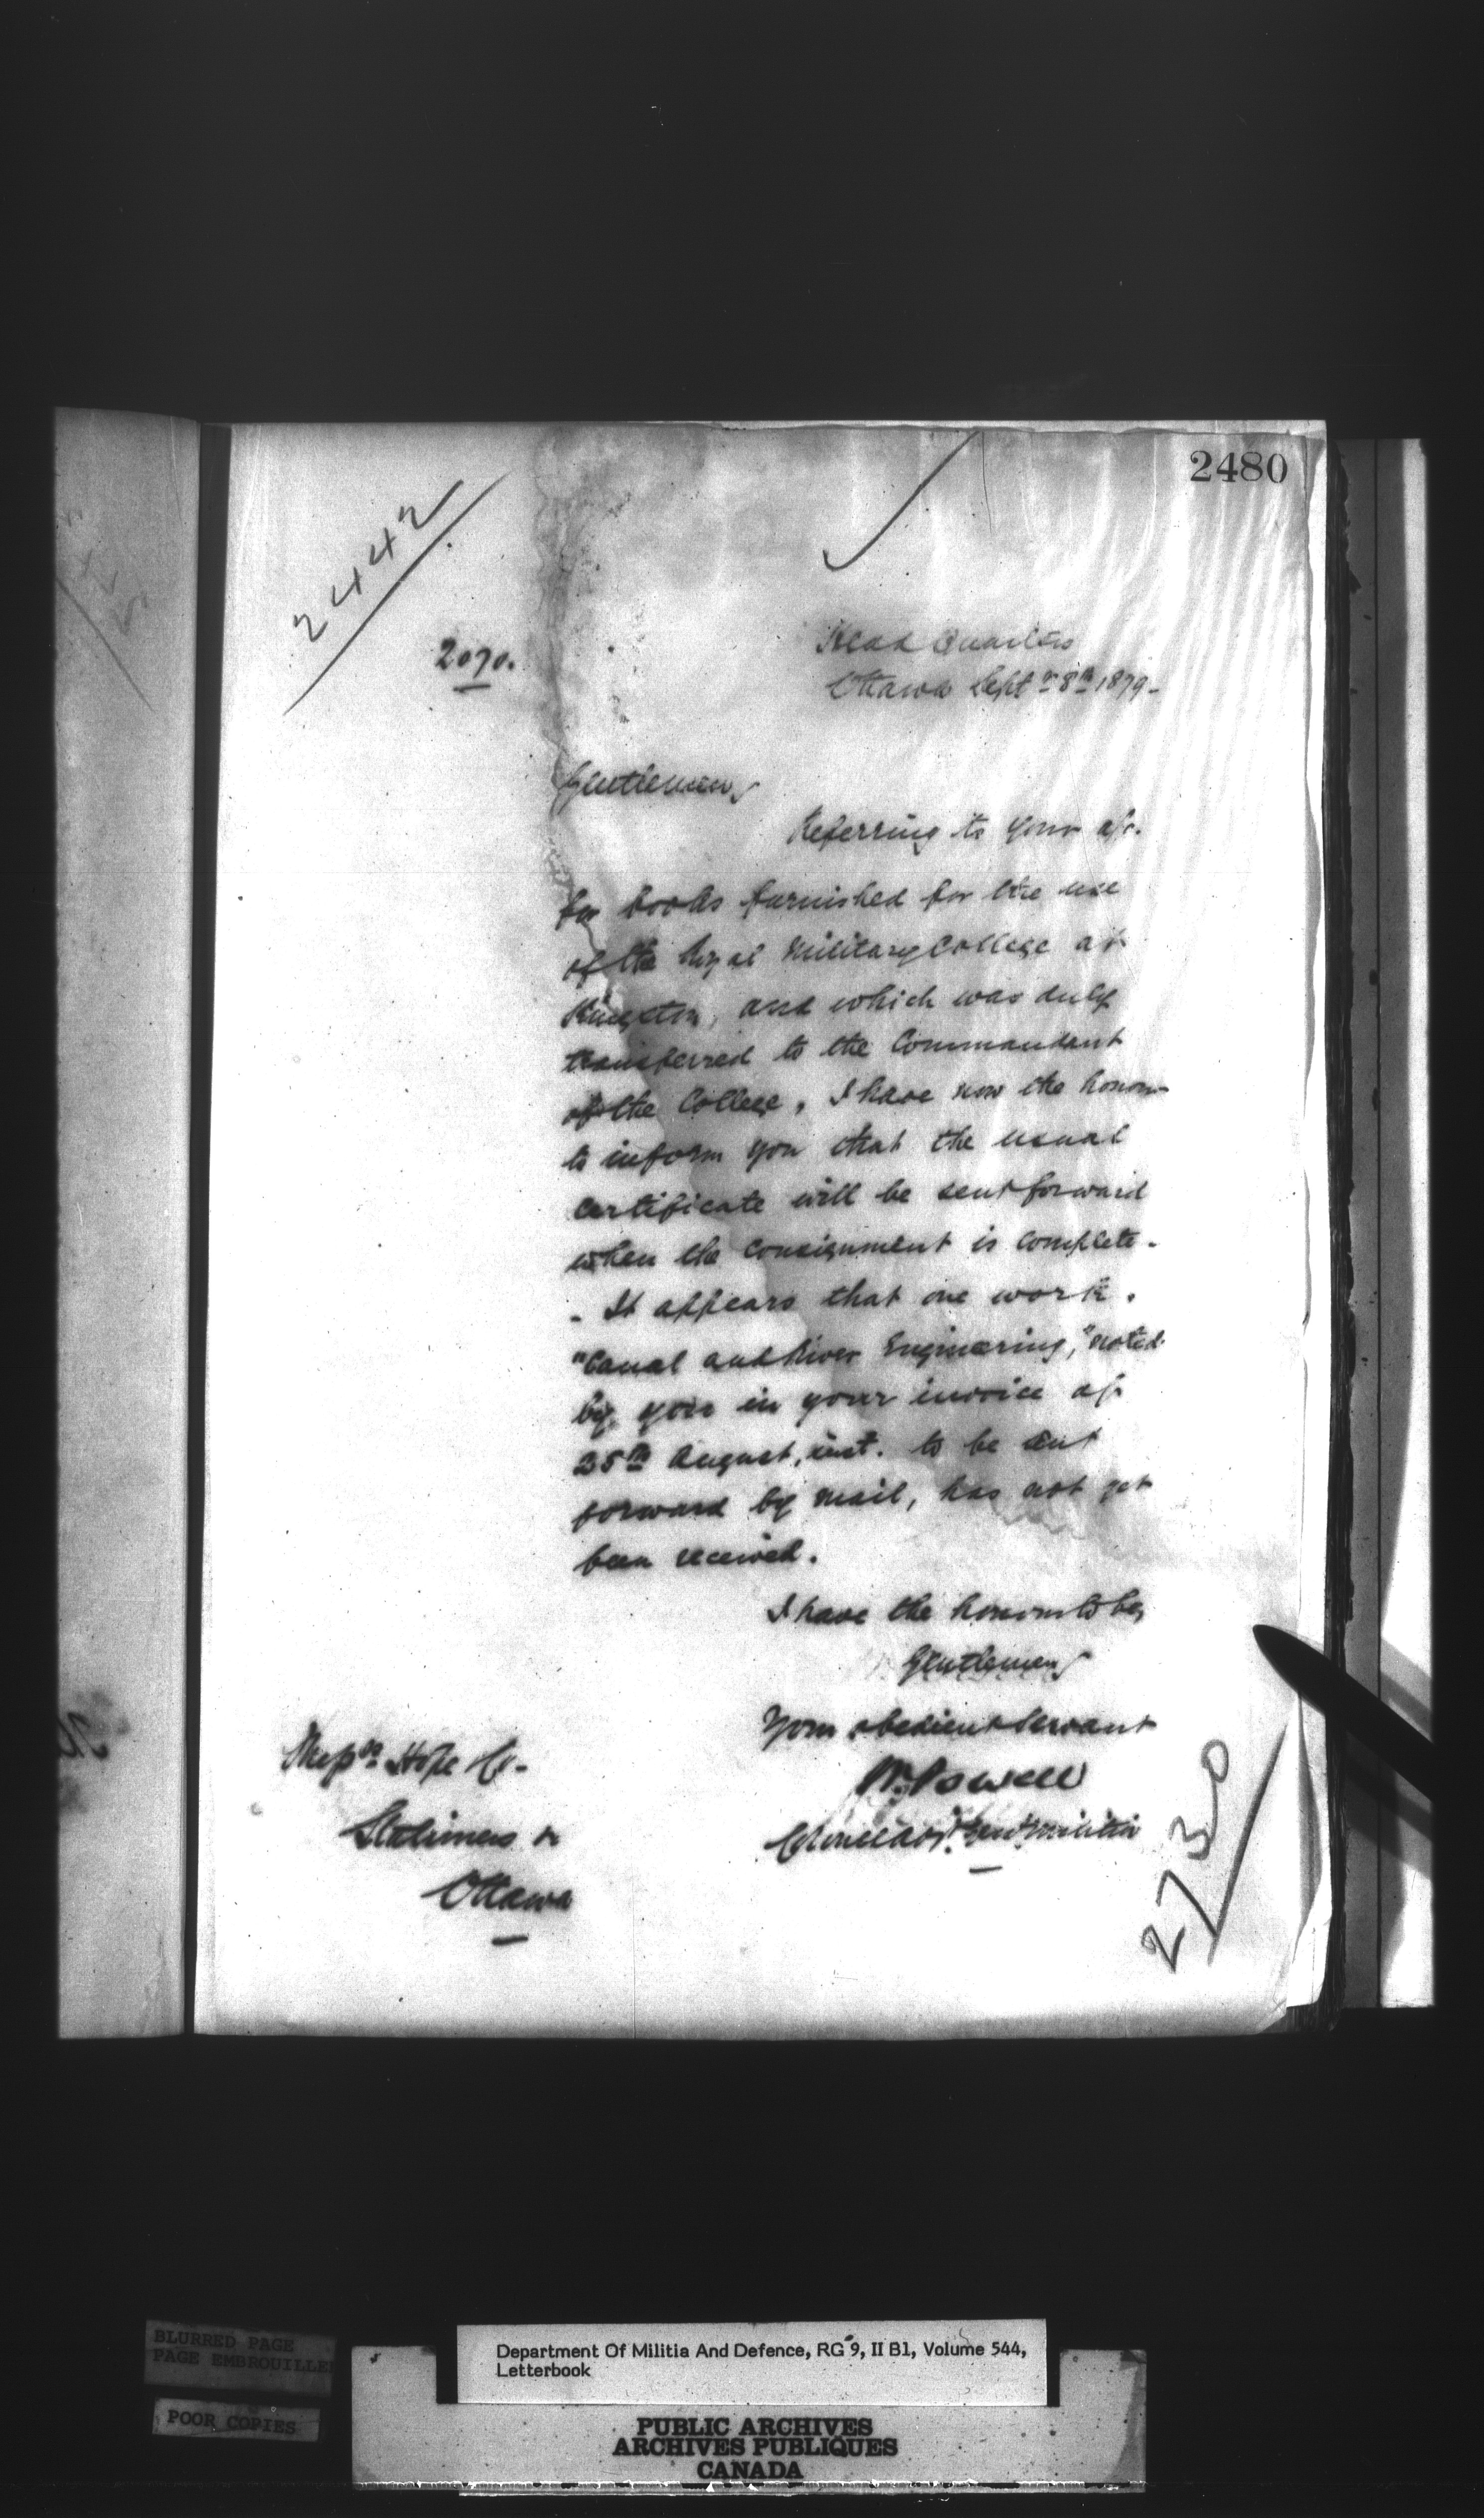 2480
2442
2070.
Head Quarters
Ottawa Septr 8th 1879-
Gentlemen,
Referring to your a/c.
for books furnished for the use
of the Royal Military College at
Kingston, and which was duly
transferred to the Commandant
of the College, I have now the honour
to inform you that the usual
certificate will be sent forward
when the consignment is complete.
- It appears that one work.
"Canal and River Enginering," noted
by you in your invoice of
25th August, inst. to be sent
forward by mail, has not yet
been received.
I have the honour to be,
Gentlemen,
Your obedient Servant
W. Powell
Colonel Adjt. Genl. Militia
Messrs Hope Co-
Stationers
Ottawa
2730
BLURRED PAGE
PAGE EMBROUILLEE
POOR COPIES
Department Of Militia And Defence, RG 9, II B1, Volume 544,
Letterbook
PUBLIC ARCHIVES
ARCHIVES PUBLIQUES
CANADA